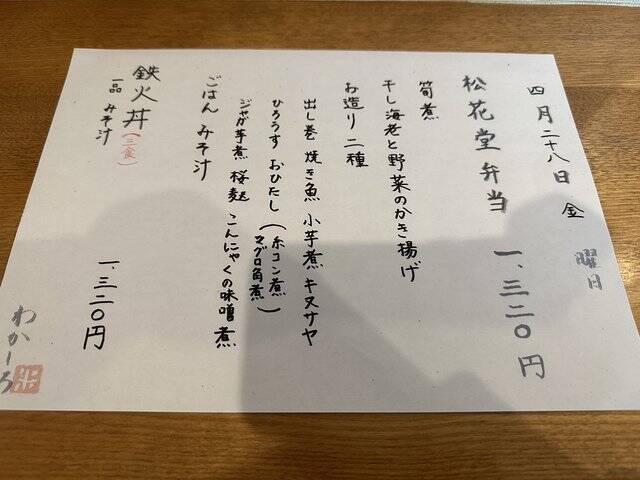 四月二十八日 金曜日
松花堂弁当 一、三二〇円
筍煮
干し海老と野菜のかき揚げ
お造り二種
出し巻 焼き魚 小芋煮 キヌサヤ
ひろうす おひたし (糸コン煮 マグロ角煮)
ジャガ芋煮 桜麩 こんにゃくの味噌煮
ごはん みそ汁
鉄火丼(三食) 一、三二〇円
一品 みそ汁
わかしろ
米